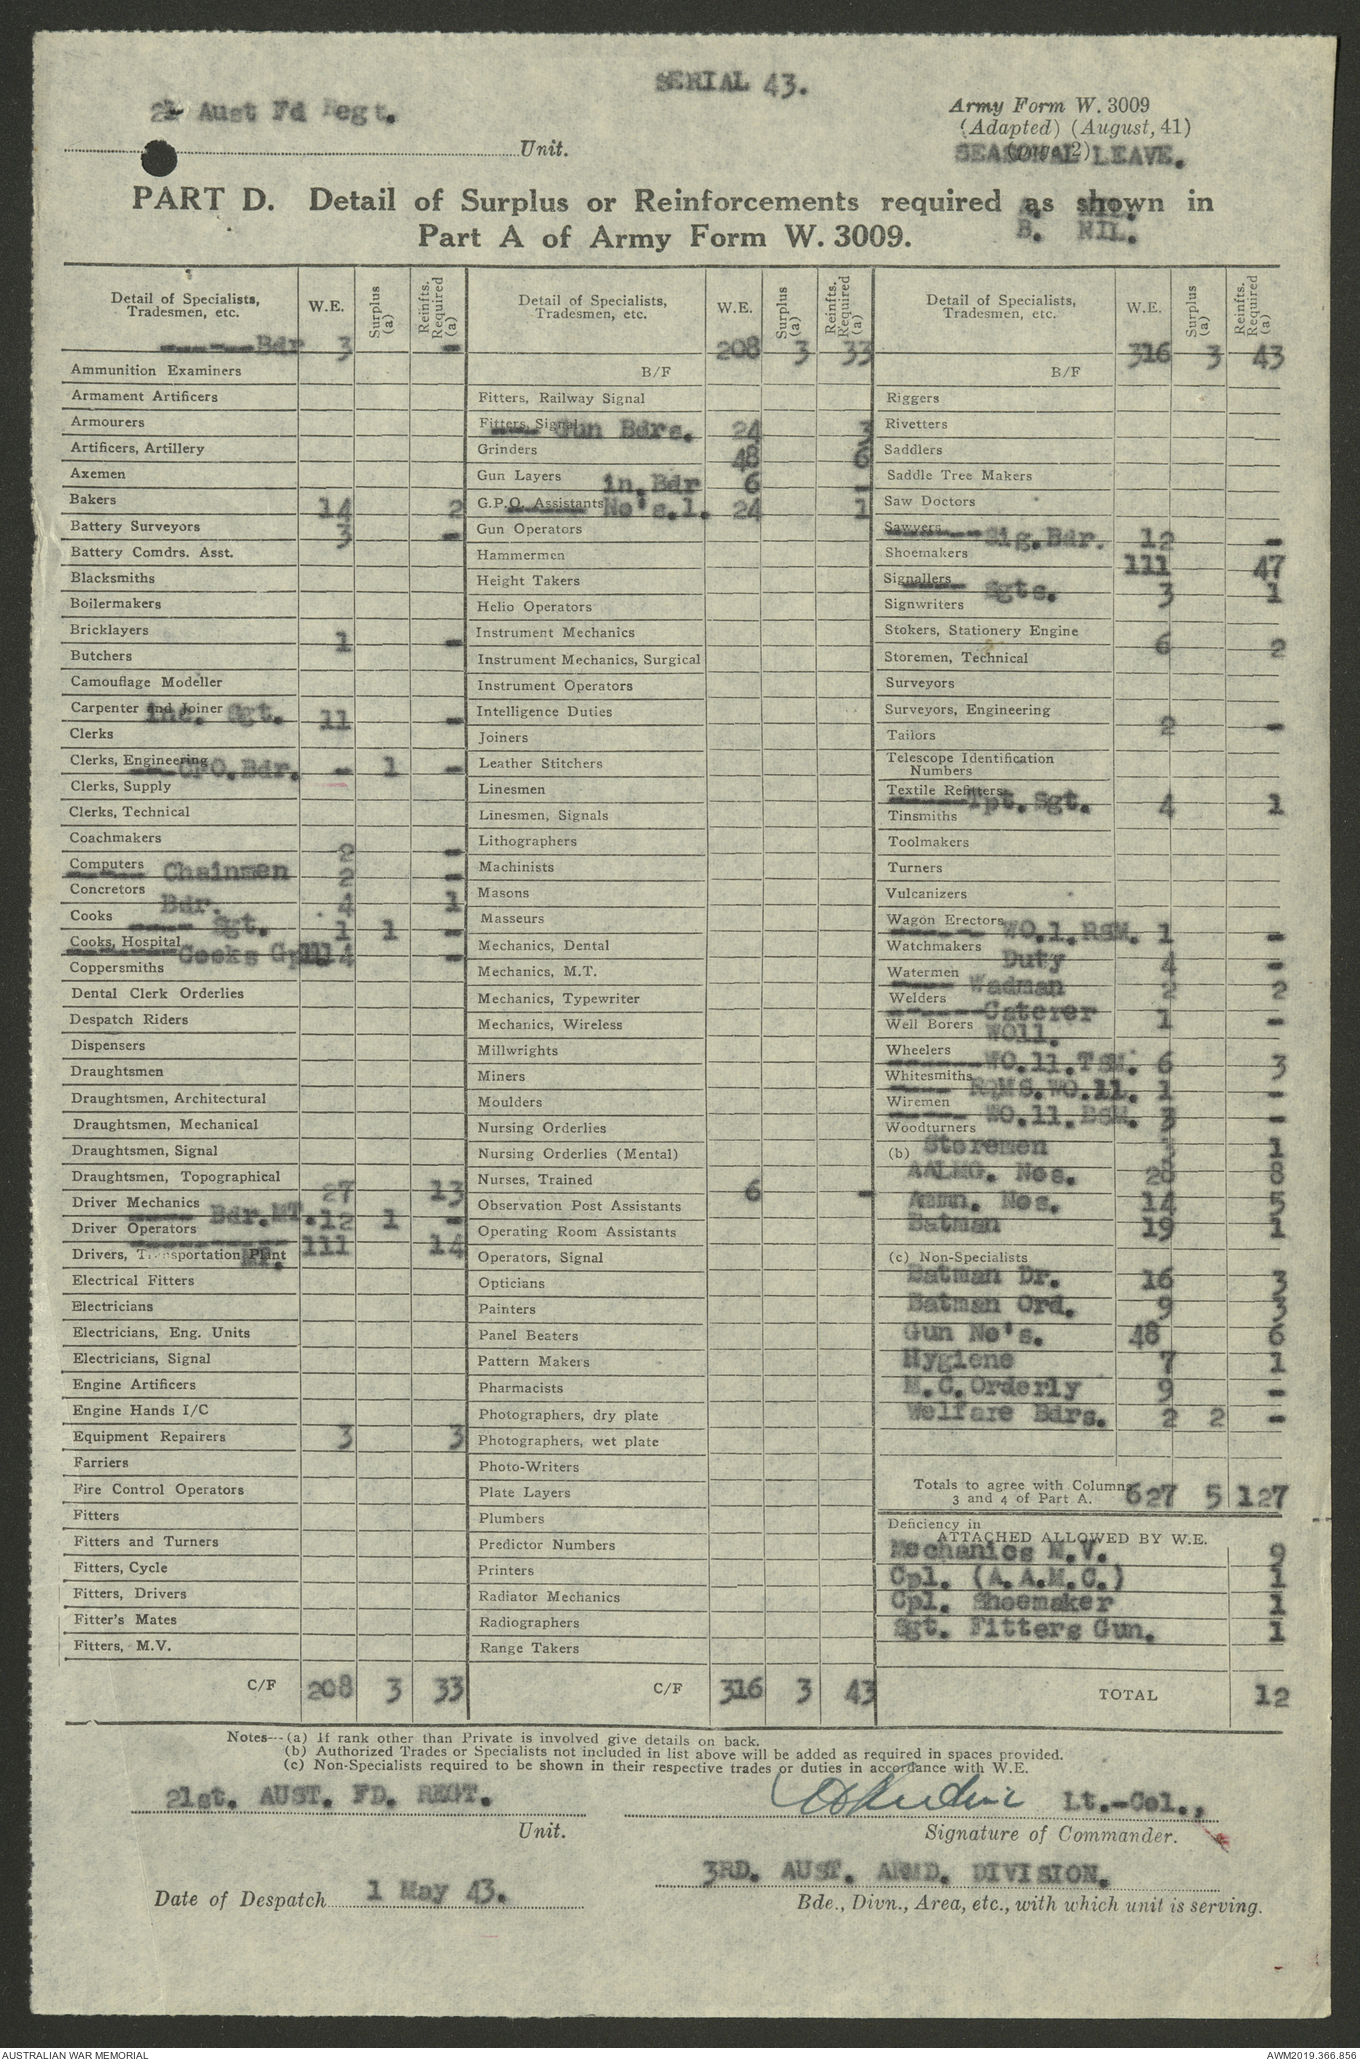 SERIAL 43.
21 Aust Fd Regt.
Unit.
Army Form W. 3009
(Adapted) (August, 41)
SEASONAL LEAVE.
PART D. Detail of Surplus or Reinforcements required as shown in
Part A of Army Form W. 3009.
B. NIL.
Detail of Specialists, Tradesmen, etc. W.E. Surplus (a) Reinfts. Required (a)
-----Bdr 3 -
Ammunition Examiners
Armament Artificers
Armourers
Artificers, Artillery
Axemen
Bakers 14 2
Battery Surveyors 3 -
Battery Comdrs. Asst.
Blacksmiths
Boilermakers
Bricklayers 1 -
Butchers
Camouflage Modeller
Carpenter and Joiner inc. Sgt. 11 -
Clerks
Clerks, Engineering ---CFO.Bdr. - 1 -
Clerks, Supply
Clerks, Technical
Coachmakers 2 -
Computers ----- Chainmen 2 -
Concretors Bdr. 4 1
Cooks ---- Sgt. 1 1 -
Cooks, Hospital ------Cooks Gp 4 -
Coppersmiths
Dental Clerk Orderlies
Despatch Riders
Dispensers
Draughtsmen
Draughtsmen, Architectural
Draughtsmen, Mechanical
Draughtsmen, Signal
Draughtsmen, Topographical 27 13
Driver Mechanics ---- Bdr.MT. 12 1 -
Driver Operators 111 14
Drivers, Transportation Plant
Electrical Fitters
Electricians
Electricians, Eng. Units
Electricians, Signal
Engine Artificers
Engine Hands I/C
Equipment Repairers 3 3
Farriers
Fire Control Operators
Fitters
Fitters and Turners
Fitters, Cycle
Fitters, Drivers
Fitter's Mates
Fitters, M.V.
C/F 208 3 33
Detail of Specialists, Tradesmen, etc. W.E. Surplus (a) Reinfts. Required (a)
B/F 208 3 33
Fitters, Railway Signal
Fitters, Signal ---- Gun Bdrs. 24 3
Grinders 48 6
Gun Layers in.Bdr 6 -
G.P.O. Assistants ------ No's.1. 24 1
Gun Operators
Hammermen
Height Takers
Helio Operators
Instrument Mechanics
Instrument Mechanics, Surgical
Instrument Operators
Intelligence Duties
Joiners
Leather Stitchers
Linesmen
Linesmen, Signals
Lithographers
Machinists
Masons
Masseurs
Mechanics, Dental
Mechanics, M.T.
Mechanics, Typewriter
Mechanics, Wireless
Millwrights
Miners
Moulders
Nursing Orderlies
Nursing Orderlies (Mental)
Nurses, Trained 6 -
Observation Post Assistants
Operating Room Assistants
Operators, Signal
Opticians
Painters
Panel Beaters
Pattern Makers
Pharmacists
Photographers, dry plate
Photographers, wet plate
Photo-Writers
Plate Layers
Plumbers
Predictor Numbers
Printers
Radiator Mechanics
Radiographers
Range Takers
C/F 316 3 43
Detail of Specialists, Tradesmen, etc. W.E. Surplus (a) Reinfts. Required (a)
B/F 316 3 43
Riggers
Rivetters
Saddlers
Saddle Tree Makers
Saw Doctors
Sawyers -------Sig.Bdr. 12 -
Shoemakers 111 47
Signallers ----- Sgts. 3 1
Signwriters
Stokers, Stationery Engine 6 2
Storemen, Technical
Surveyors
Surveyors, Engineering 2 -
Tailors
Telescope Identification Numbers
Textile Refitters ------Tpt.Sgt. 4 1
Tinsmiths
Toolmakers
Turners
Vulcanizers
Wagon Erectors ------ WO.1.RSM. 1 -
Watchmakers Duty 4 -
Watermen ---- Wadman 2 2
Welders -------Caterer 1 -
Well Borers WO11.
Wheelers -------WO.11.TSM. 6 3
Whitesmiths ---- RQMS.WO.11. 1 -
Wiremen ----- WO.11.BSM. 3 -
Woodturners
(b) Storemen 3 1
AALMG. Nos. 28 8
Ammn. Nos. 14 5
Batman 19 1
(c) Non-Specialists
Batman Dr. 16 3
Batman Ord. 9 3
Gun No's. 48 6
Hygiene 7 1
M.C.Orderly 9 -
Welfare Bdrs. 2 2 -
Totals to agree with Columns 3 and 4 of Part A. 627 5 127
Deficiency in
ATTACHED ALLOWED BY W.E.
Mechanics M.V. 9
Cpl. (A.A.M.C.) 1
Cpl. Shoemaker 1
Sgt. Fitters Gun. 1
TOTAL 12
Notes--(a) If rank other than Private is involved give details on back.
(b) Authorized Trades or Specialists not included in list above will be added as required in spaces provided.
(c) Non-Specialists required to be shown in their respective trades or duties in accordance with W.E.
21st. AUST. FD. REGT.
Unit.
Lt.-Col.,
Signature of Commander.
Date of Despatch 1 May 43.
3RD. AUST. ARMD. DIVISION.
Bde., Divn., Area, etc., with which unit is serving.
AUSTRALIAN WAR MEMORIAL
AWM2019.366.856